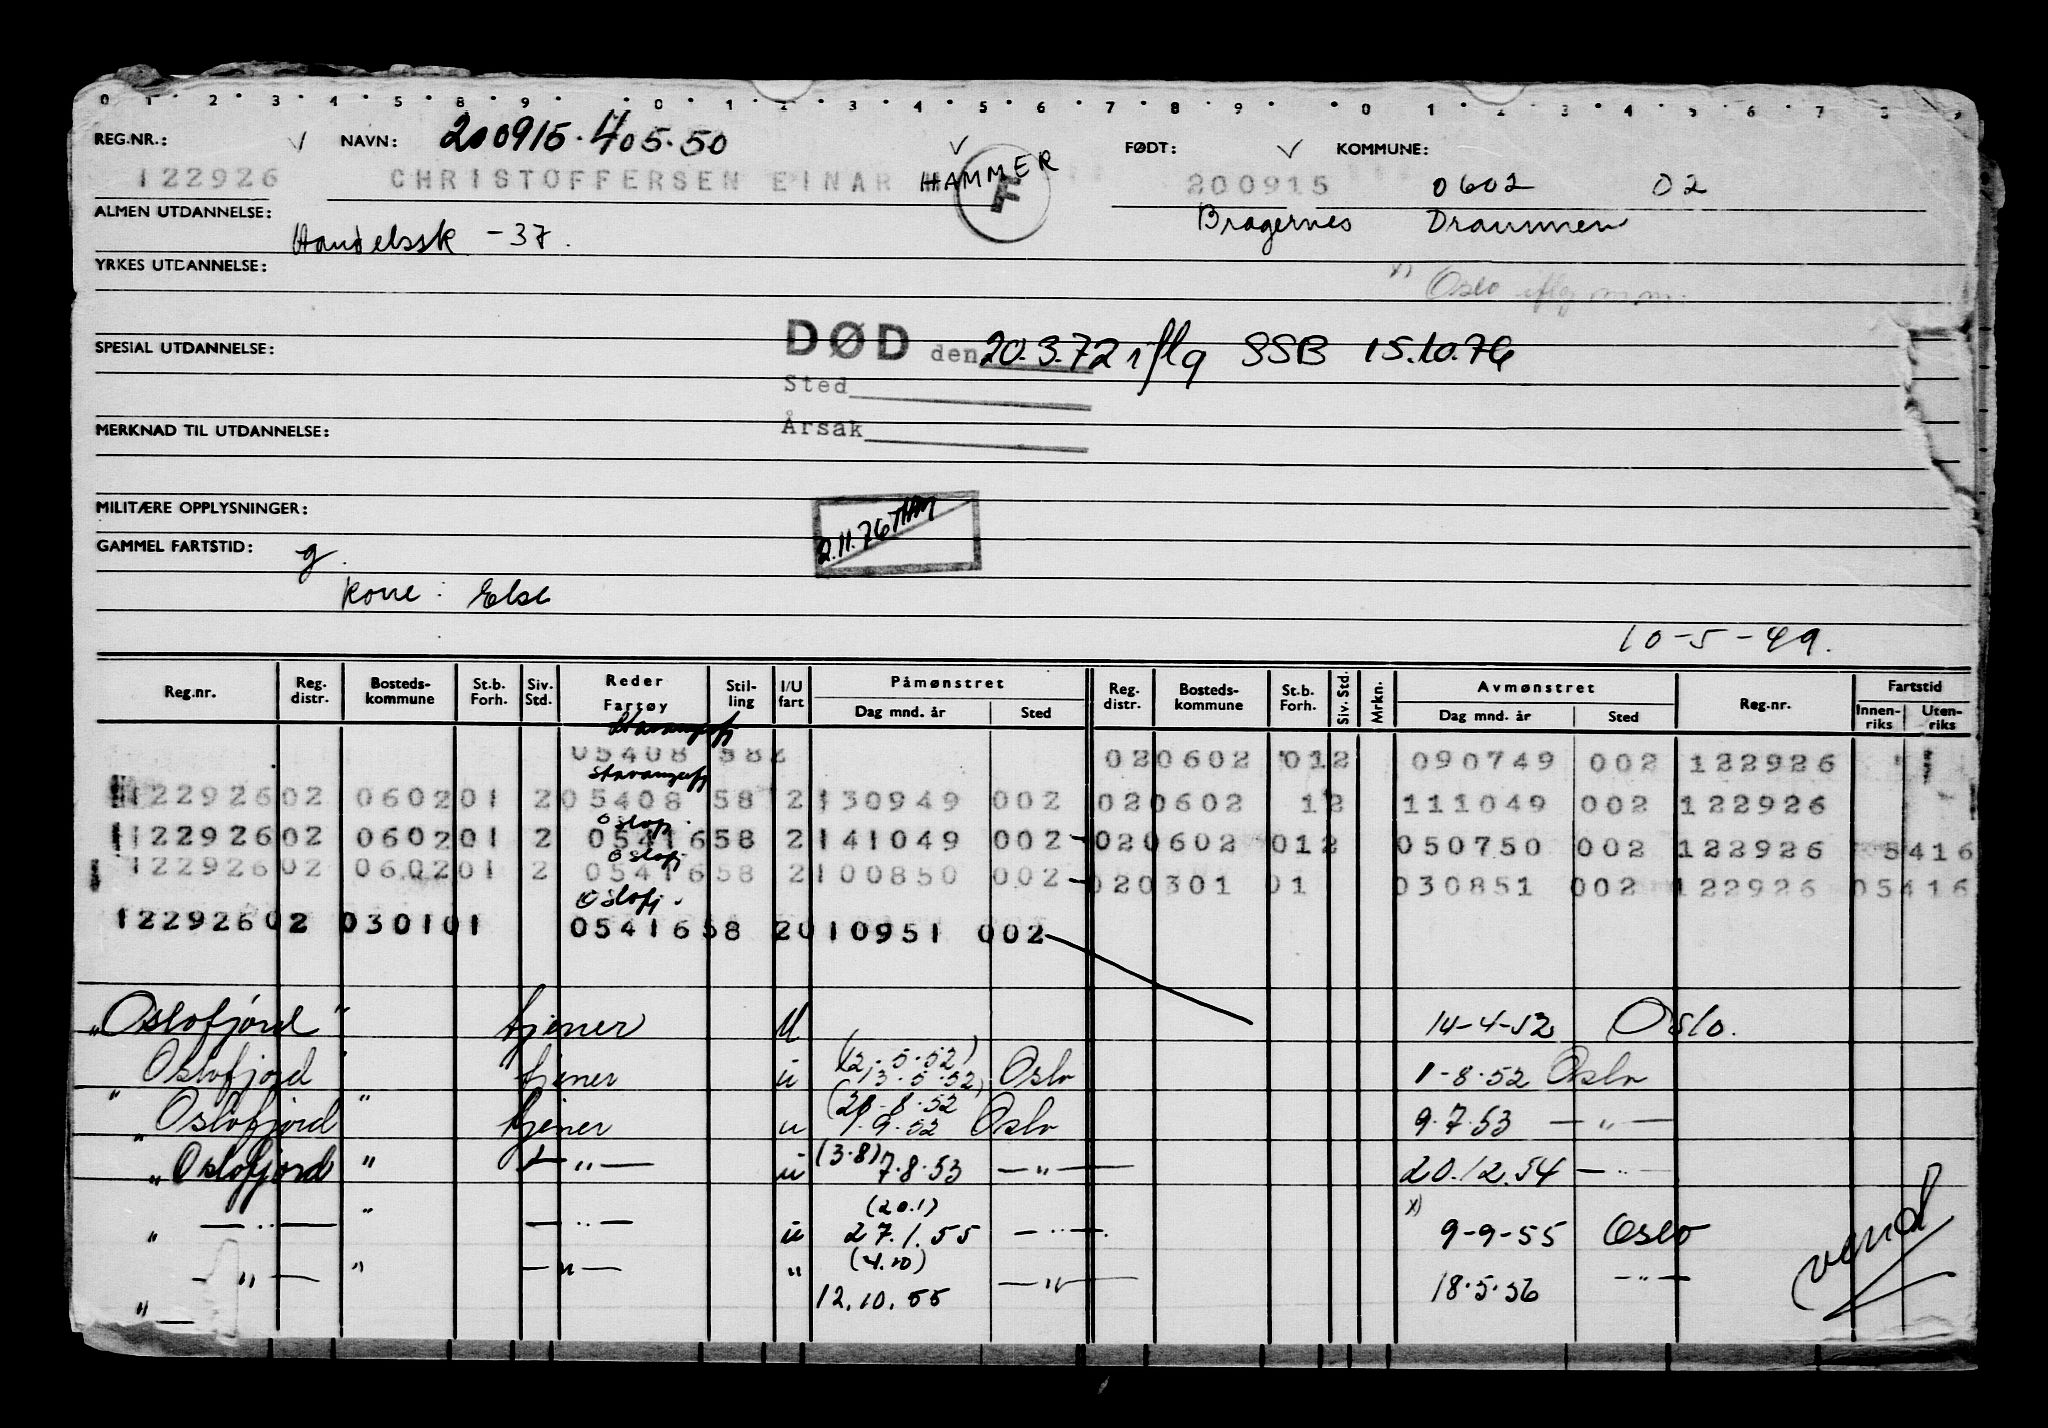 0 1 2 3 4 5 8 9 0 1 2 3 4 5 6 7 8 9 0 1 2 3 4 5 6 7 8 9
REG.NR.: NAVN: 200915.405.50 FØDT: KOMMUNE:
122926 CHRISTOFFERSEN EINAR HAMMER F 200915 0602 02
ALMEN UTDANNELSE: Handelssk -37. Bragernes Drammen
YRKES UTDANNELSE: x) Oslo iflg m.m.
SPESIAL UTDANNELSE: DØD den 20.3.72 iflg SSB 15.10.76
Sted
MERKNAD TIL UTDANNELSE: Årsak
MILITÆRE OPPLYSNINGER: 2.11.76 THM
GAMMEL FARTSTID: g.
Kone: Else
10-5-49.
Reg.nr. Reg. distr. Bosteds- kommune St.b. Forh. Siv. Std. Reder Fartøy Stil- ling I/U fart Påmønstret Dag mnd. år Sted Reg. distr. Bosteds- kommune St.b. Forh. Siv. Std. Mrkn. Avmønstret Dag mnd. år Sted Reg.nr. Fartstid Innen- riks Uten- riks
Stavangerfj
05408 582 020602 012 090749 002 122926
Stavangerfj
122926 02 0602 01 2 05408 58 2 130949 002 020602 12 111049 002 122926
Oslofj.
122926 02 0602 01 2 05416 58 2 141049 002 020602 012 050750 002 122926 5416
Oslofj
122926 02 0602 01 2 05416 58 2 100850 002 020301 01 030851 002 122926 05416
Oslofj.
122926 02 0301 01 05416 58 2 010951 002
"Oslofjord" tjener U 14-4-52 Oslo.
(12.5.52)
"Oslofjord" tjener u 13.5.52 Oslo 1-8.52 Oslo
(28.8.52)
"Oslofjord" tjener u 1.9.52 Oslo 9.7.53 —"—
"Oslofjord" —"— u (3.8) 7.8.53 —"— 20.12.54 —"—
(20.1)
" —"— " —"— u 27.1.55 —"— x) 9-9-55 Oslo
(4.10)
" —"— " —"— " 12.10.55 —"— 18.5.56 —"—
vend